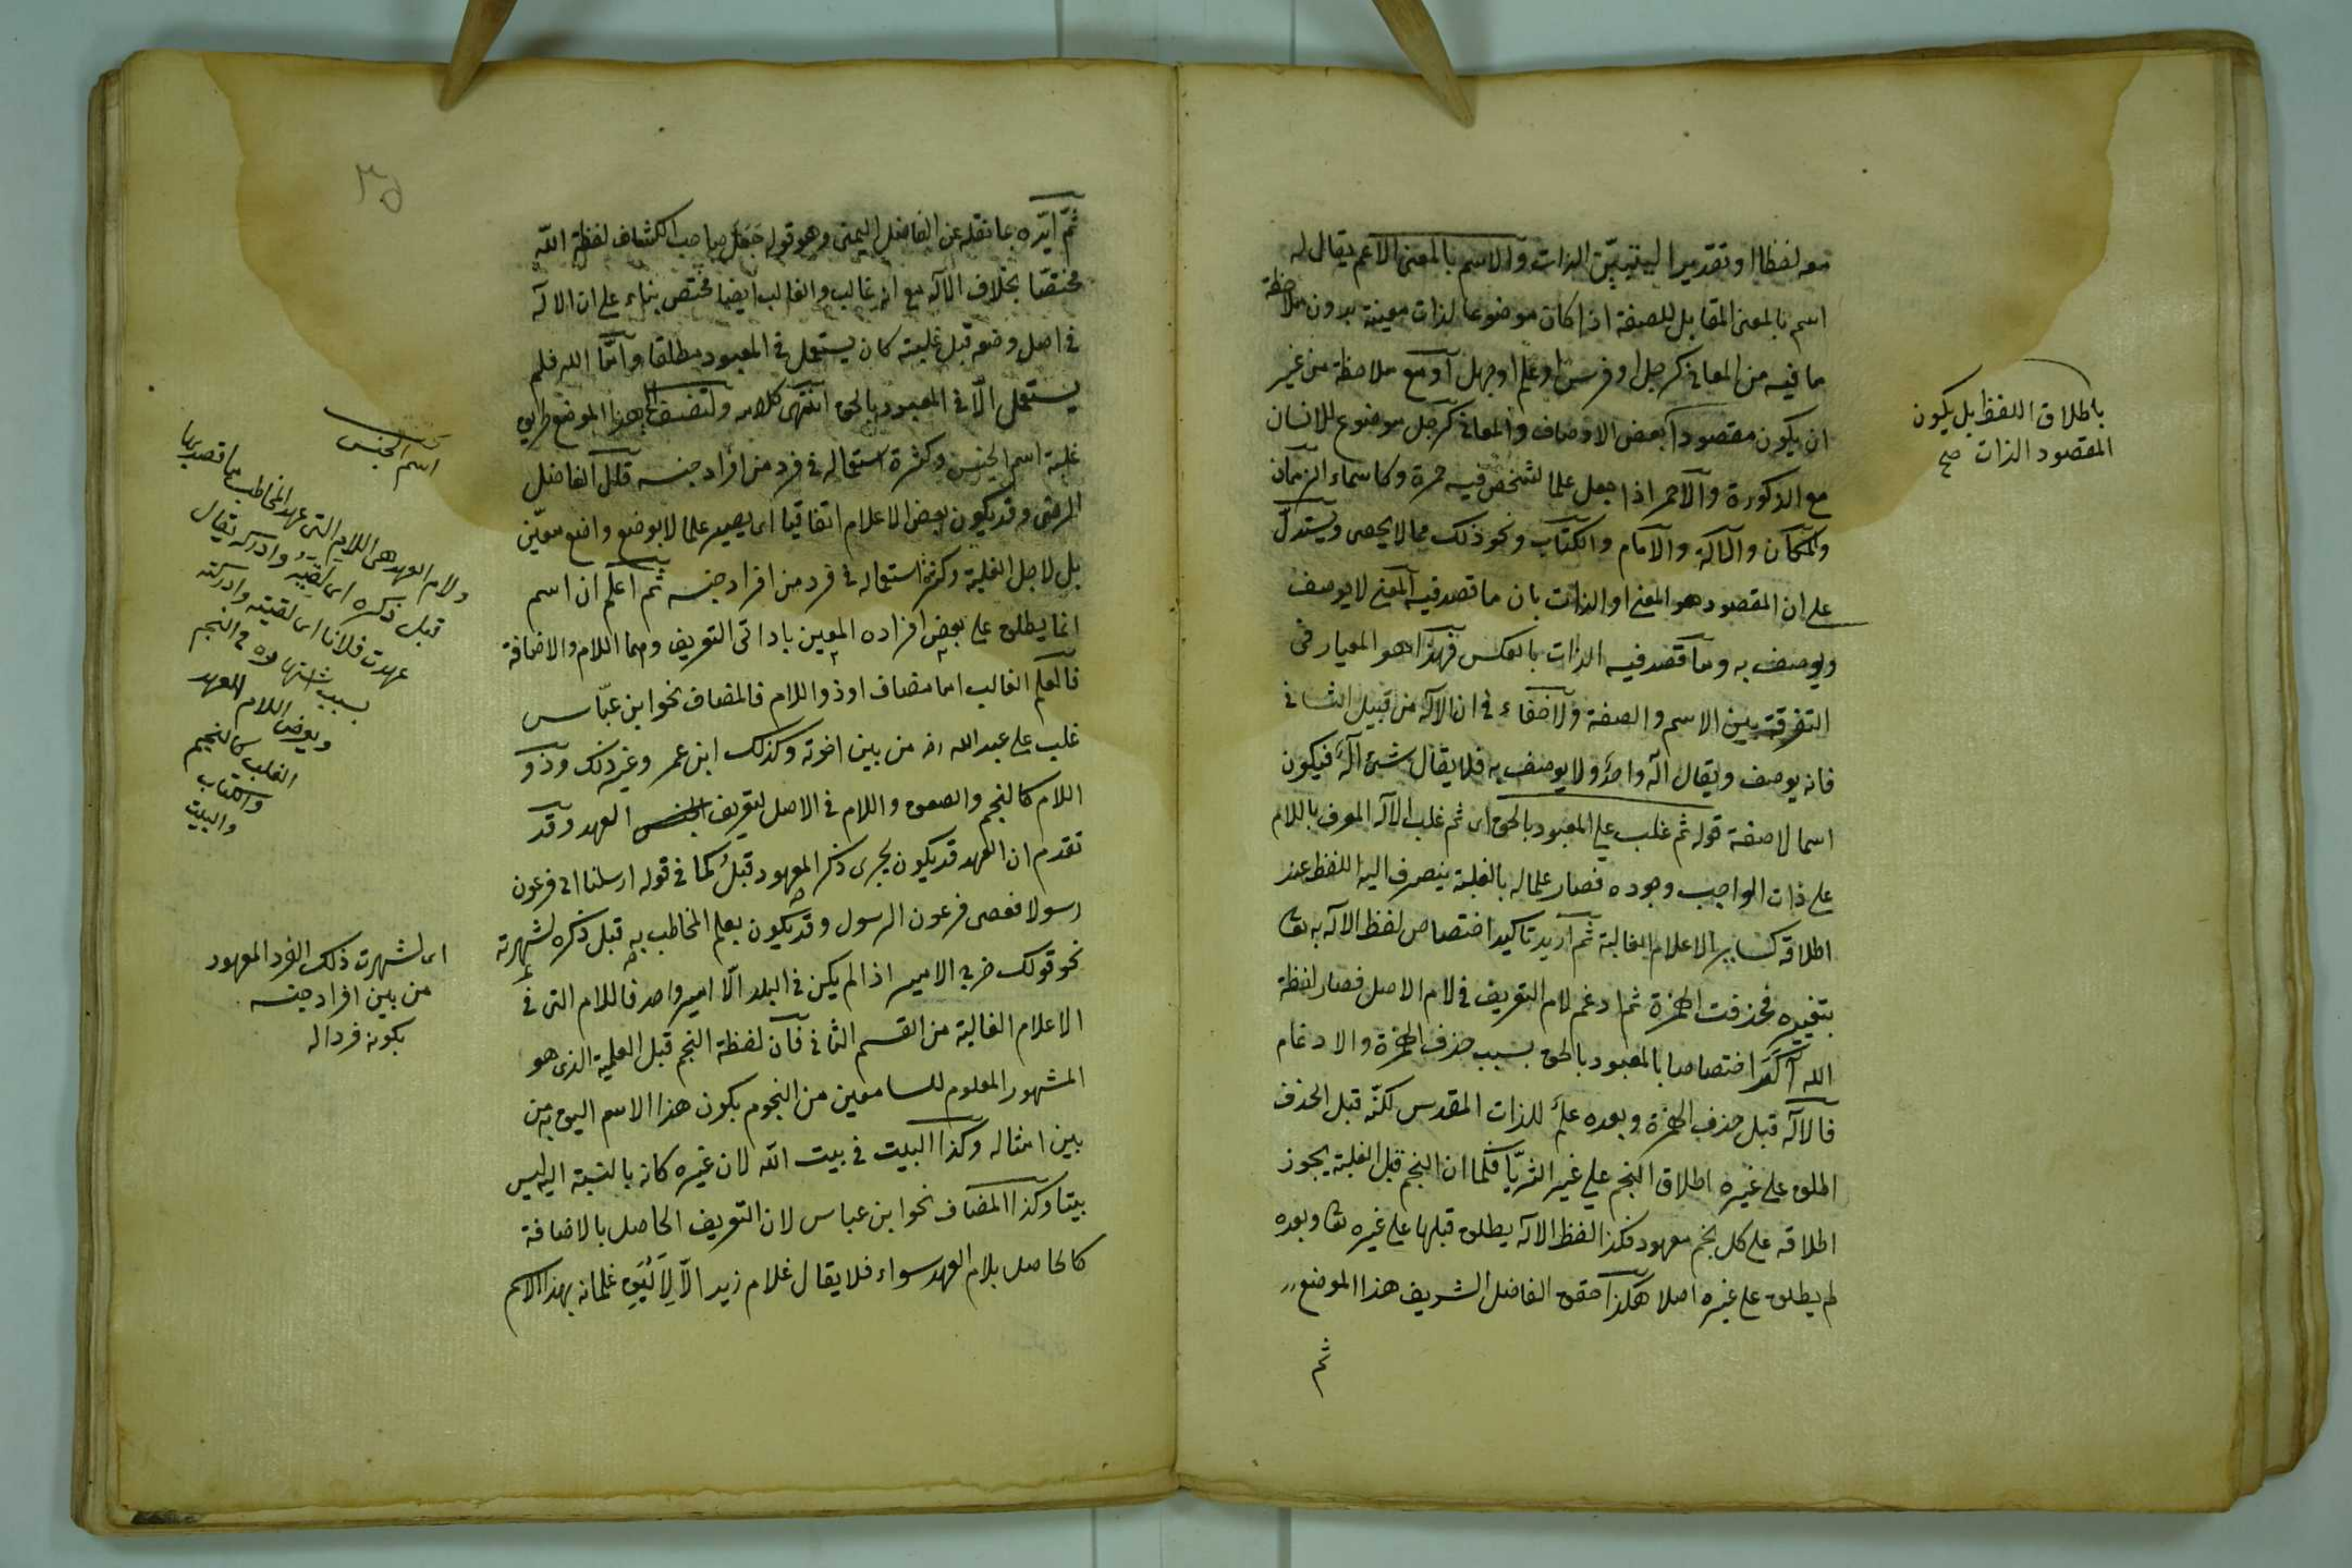 معه لفظا او تقديرا ليتبين الذات والاسم بالمعنى الاعم يقال له
اسم بالمعنى المقابل للصفة اذا كان موضوعا لذات معينة بدون ملاحظة
ما فيه من المعانى كرجل او فرس او علم او جهل او مع ملاحظة من غير
ان يكون مقصودا بعض الاوصاف والمعانى كرجل موضوع للانسان
مع الذكورة والاحمر اذا جعل علما لشخص فيه حمرة وكاسماء الزمان
والمكان والآلة والامام والكتاب ونحو ذلك مما لا يحصى ويستدل
على ان المقصود هو المعنى او الذات بان ما قصد فيه المعنى لا يوصف
ويوصف به وما قصد فيه الذات بالعكس فهذا هو المعيار فى
التفرقة بين الاسم والصفة ولا خفاء فى ان الاله من قبيل الثانى
فانه يوصف ويقال اله واحد ولا يوصف به فلا يقال شئ اله فيكون
اسما لا صفة قوله ثم غلب على المعبود بالحق اى ثم غلب الاله المعرف باللام
على ذات الواجب وجوده فصار علما له بالغلبة ينصرف اليه اللفظ عند
اطلاقه كسائر الاعلام الغالبة ثم اريد تاكيد اختصاص لفظ الاله به تعا
بتغييره فحذفت الهمزة ثم ادغم لام التعريف فى لام الاصل فصار لفظة
الله اكد اختصاصا بالمعبود بالحق بسبب حذف الهمزة والادغام
فالاله قبل حذف الهمزة وبعده علم للذات المقدس لكنه قبل الحذف
اطلق على غيره اطلاق النجم على غير الثريا فكما ان النجم قبل الغلبة يجوز
اطلاقه على كل نجم معهود فكذا لفظ الاله يطلق قبلها على غيره تعا وبعده
لم يطلق على غيره اصلا هكذا حقق الفاضل الشريف هذا الموضع
ثم
باطلاق اللفظ بل يكون
المقصود الذات صح
ثم ايده بما نقله عن الفاضل اليمنى وهو قوله جعل صاحب الكشاف لفظة الله
مختصا بخلاف الاله مع انه غالب والغالب ايضا مختص بناء على ان الاله
فى اصل وضعه قبل غلبته كان يستعمل فى المعبود مطلقا واما الله فلم
يستعمل الا فى المعبود بالحق انتهى كلامه هذا الموضع طريق
غلبة اسم الجنس وكثرة استعماله فى فرد من افراد جنسه قال الفاضل
الرضى وقد يكون بعض الاعلام اتفاقيا اى يصير علما لا بوضع واضع معين
بل لاجل الغلبة وكثرة استعماله فى فرد من افراد جنسه ثم اعلم ان اسم
انما يطلق على بعض افراده المعين باداتى التعريف وهما اللام والاضافة
فالعلم الغالب اما مضاف او ذو اللام فالمضاف نحو ابن عباس
غلب على عبد الله رضه من بين اخوته وكذلك ابن عمر وغير ذلك وذو
اللام كالنجم والصعق واللام فى الاصل لتعريف العهد وقد
تقدم ان العهد قد يكون بجرى ذكر المعهود قبل كما فى قوله ارسلنا الى فرعون
رسولا فعصى فرعون الرسول وقد يكون بعلم المخاطب به قبل ذكره لشهرته
نحو قولك خرج الامير اذا لم يكن فى البلد الا امير واحد فاللام التى فى
الاعلام الغالبة من القسم الثانى فان لفظة النجم قبل العلمية الذى هو
المشهور المعلوم للسامعين من النجوم بكون هذا الاسم اليق به من
بين امثاله وكذا البيت فى بيت الله لان غيره كانه بالنسبة اليه ليس
بيتا وكذا المضاف نحو ابن عباس لان التعريف الحاصل بالاضافة
كالحاصل بلام العهد سواء فلا يقال غلام زيد الا لاليق غلمانه بهذا الاسم
اسم الجنس
ولام العهد هى اللام التى عهد المخاطب ما قصد بها
قبل ذكره اى لقيه وادركه يقال
عهدت فلانا اى لقيته وادركته
بسبب اشتهاره فى النجم
ويعوض اللام العهد
الغلب كالنجم
والكتاب
والبيت
اى لشهرت ذلك الفرد المعهود
من بين افراد جنسه
بكونه فردا له